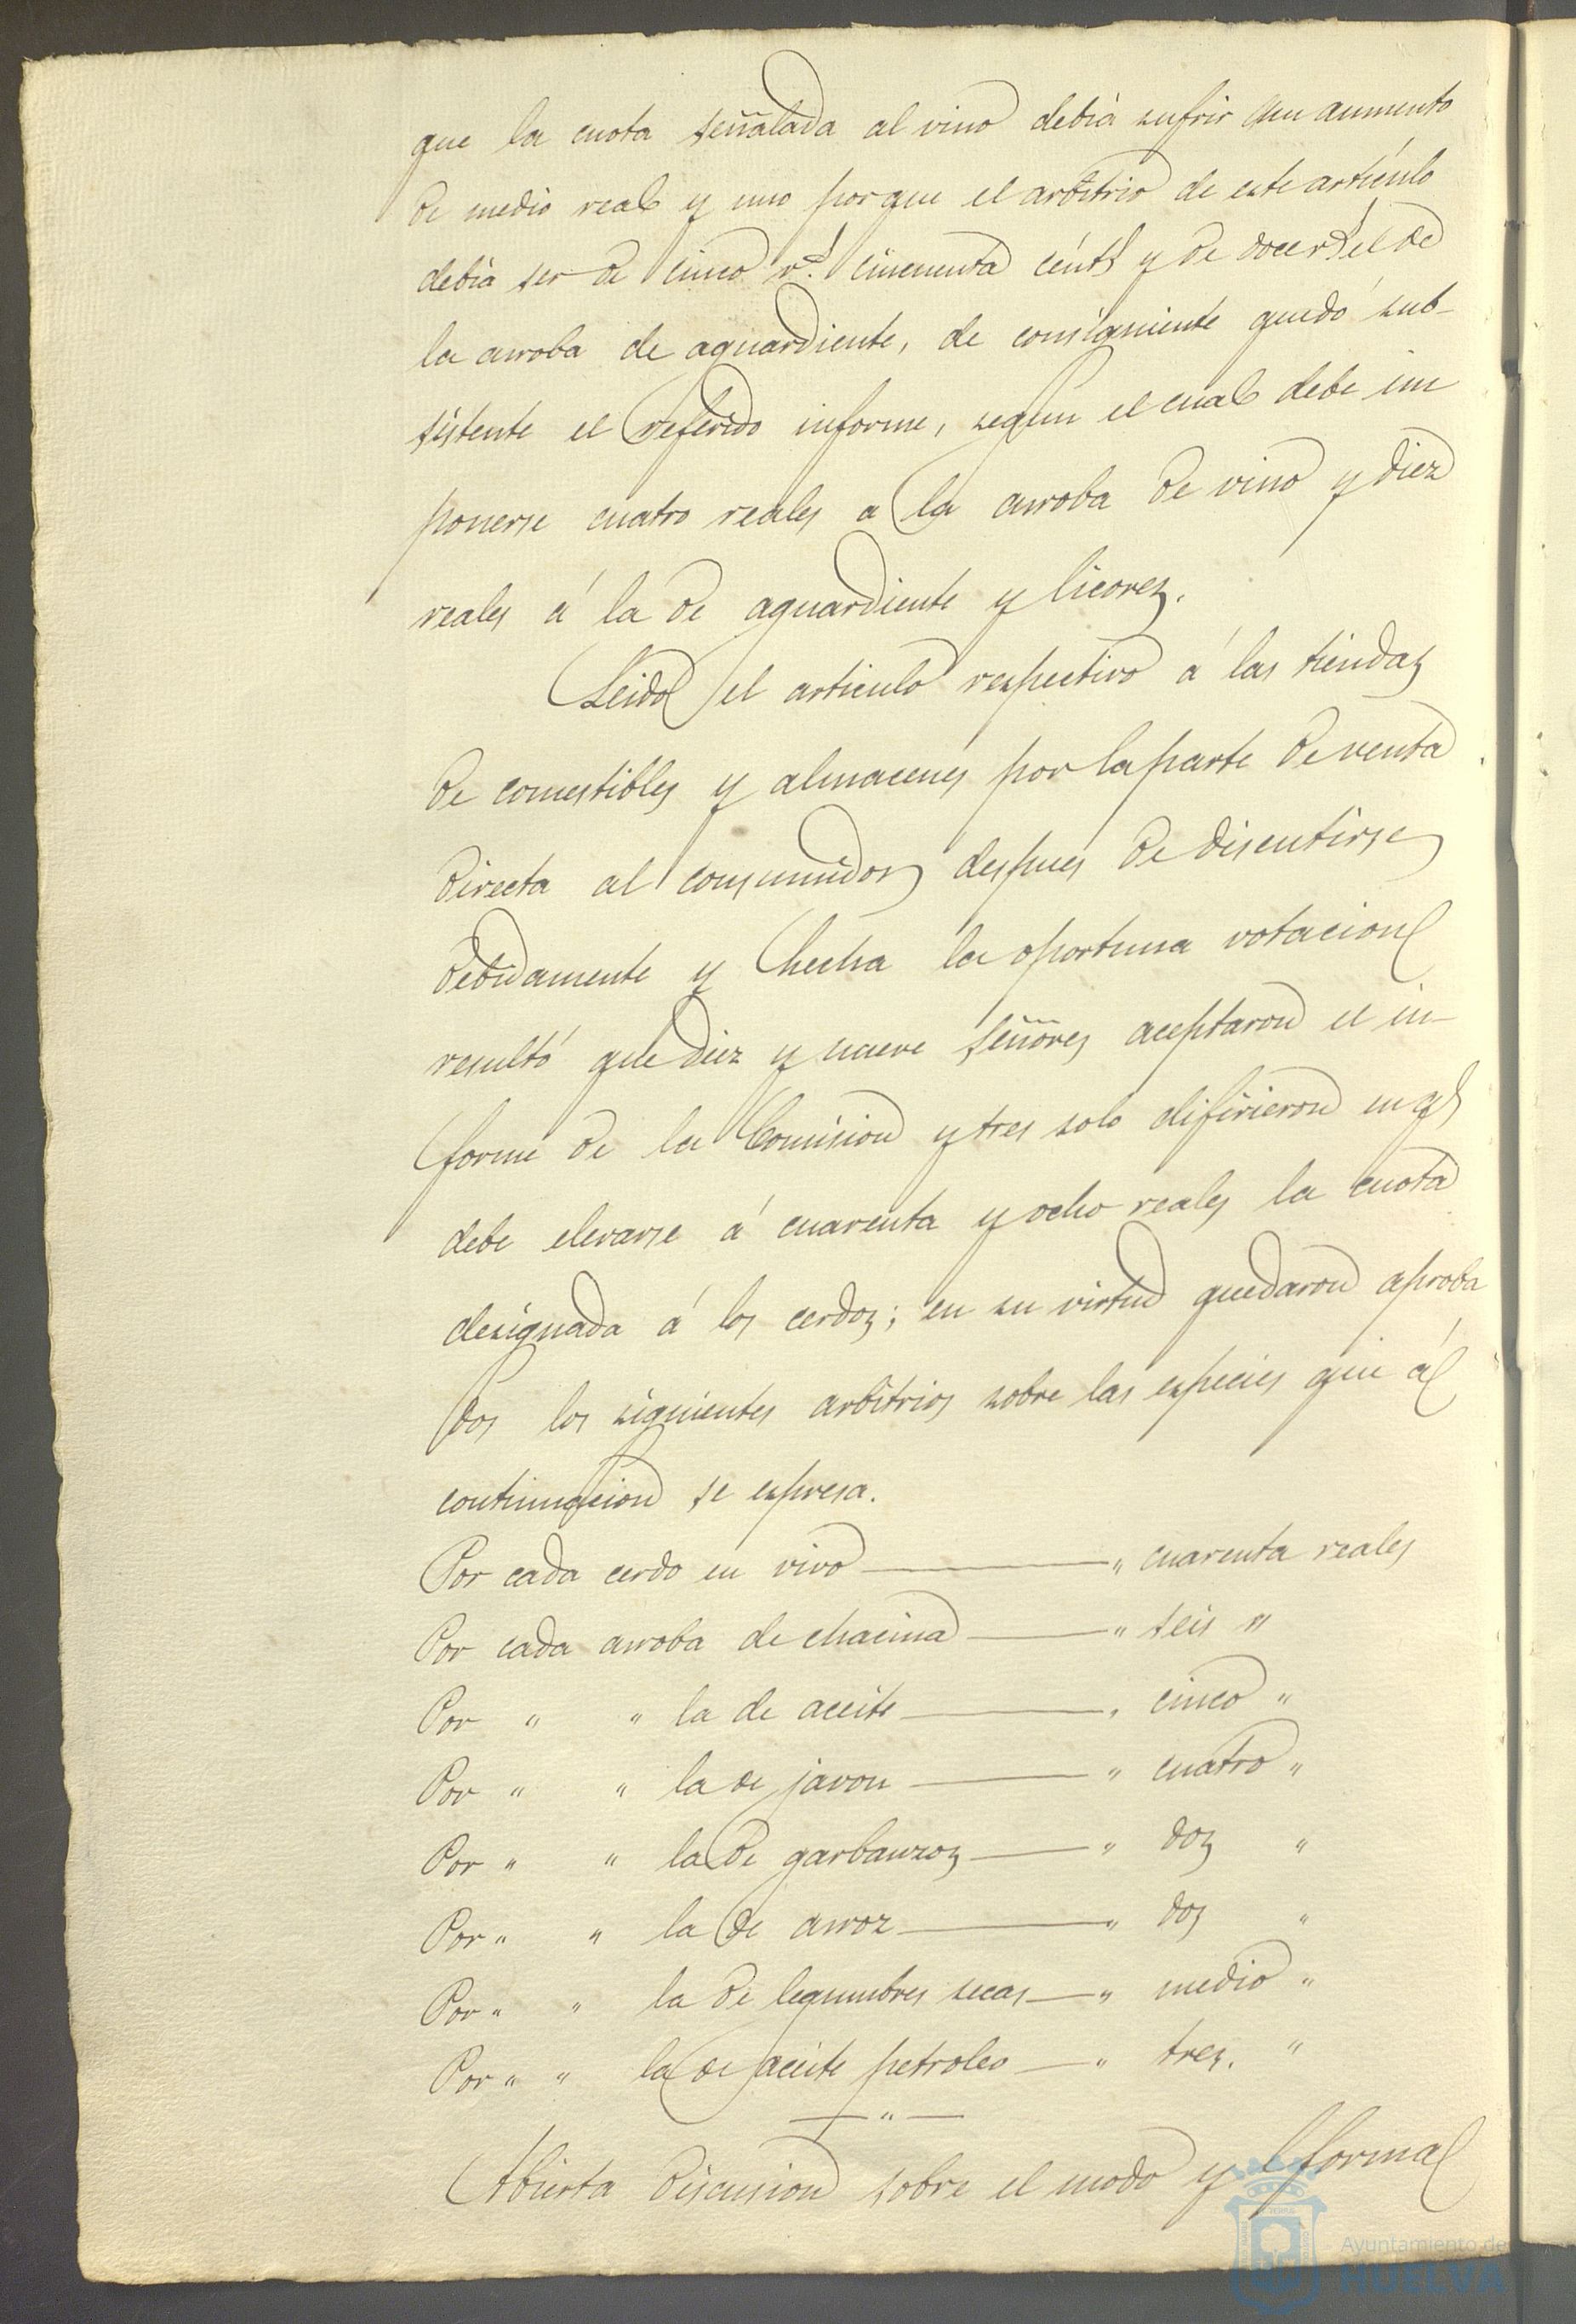 que la cuota señalada al vino debia sufrir un aumento
de medio real y uno porque el arbitrio de este articulo
debia ser de cinco rs. cincuenta cénts y de doce rs el de
la arroba de aguardiente, de consiguiente quedó sub-
sistente el referido informe, segun el cual debe im
ponerse cuatro reales a la arroba de vino y diez
reales á la de aguardiente y licores.
Leido el articulo respectivo á las tiendas
de comestibles y almacenes por la parte de venta
directa al consumidor despues de discutirse
debidamente y hecha la oportuna votacion
resultó que diez y nueve señores aceptaron el in-
forme de la Comision y tres solo difirieron en qe
debe elevarse á cuarenta y ocho reales la cuota
designada á los cerdos; en su virtud quedaron aproba
dos los siguientes arbitrios sobre las especies que á
continuacion se espresa.
Por cada cerdo en vivo ——— " cuarenta reales
Por cada arroba de chacina ——— " seis "
Por " " la de aceite ——— " cinco "
Por " " la de javon ——— " cuatro "
Por " " la de garbanzos ——— " dos "
Por " " la de arroz ——— " dos "
Por " " la de legumbres secas — " medio "
Por " " la de aceite petroleo — " tres. "
— " —
Abierta discusion sobre el modo y forma
Ayuntamiento de
HUELVA